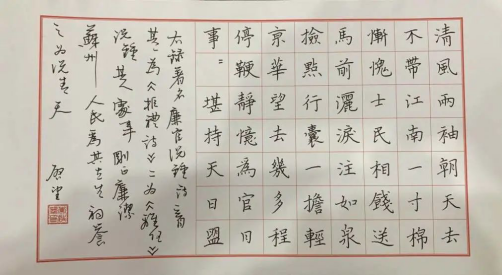 清風兩袖朝天去
不帶江南一寸棉
慚愧士民相餞送
馬前灑淚注如泉
撿點行囊一擔輕
京華望去幾多程
停鞭靜憶為官日
事〻堪持天日盟
右録著名廉官况鍾詩二首
其一為《拒禮詩》二為《離任》
况鍾其人處事剛正廉潔
蘇州人民為其立生祠譽
之為况青天